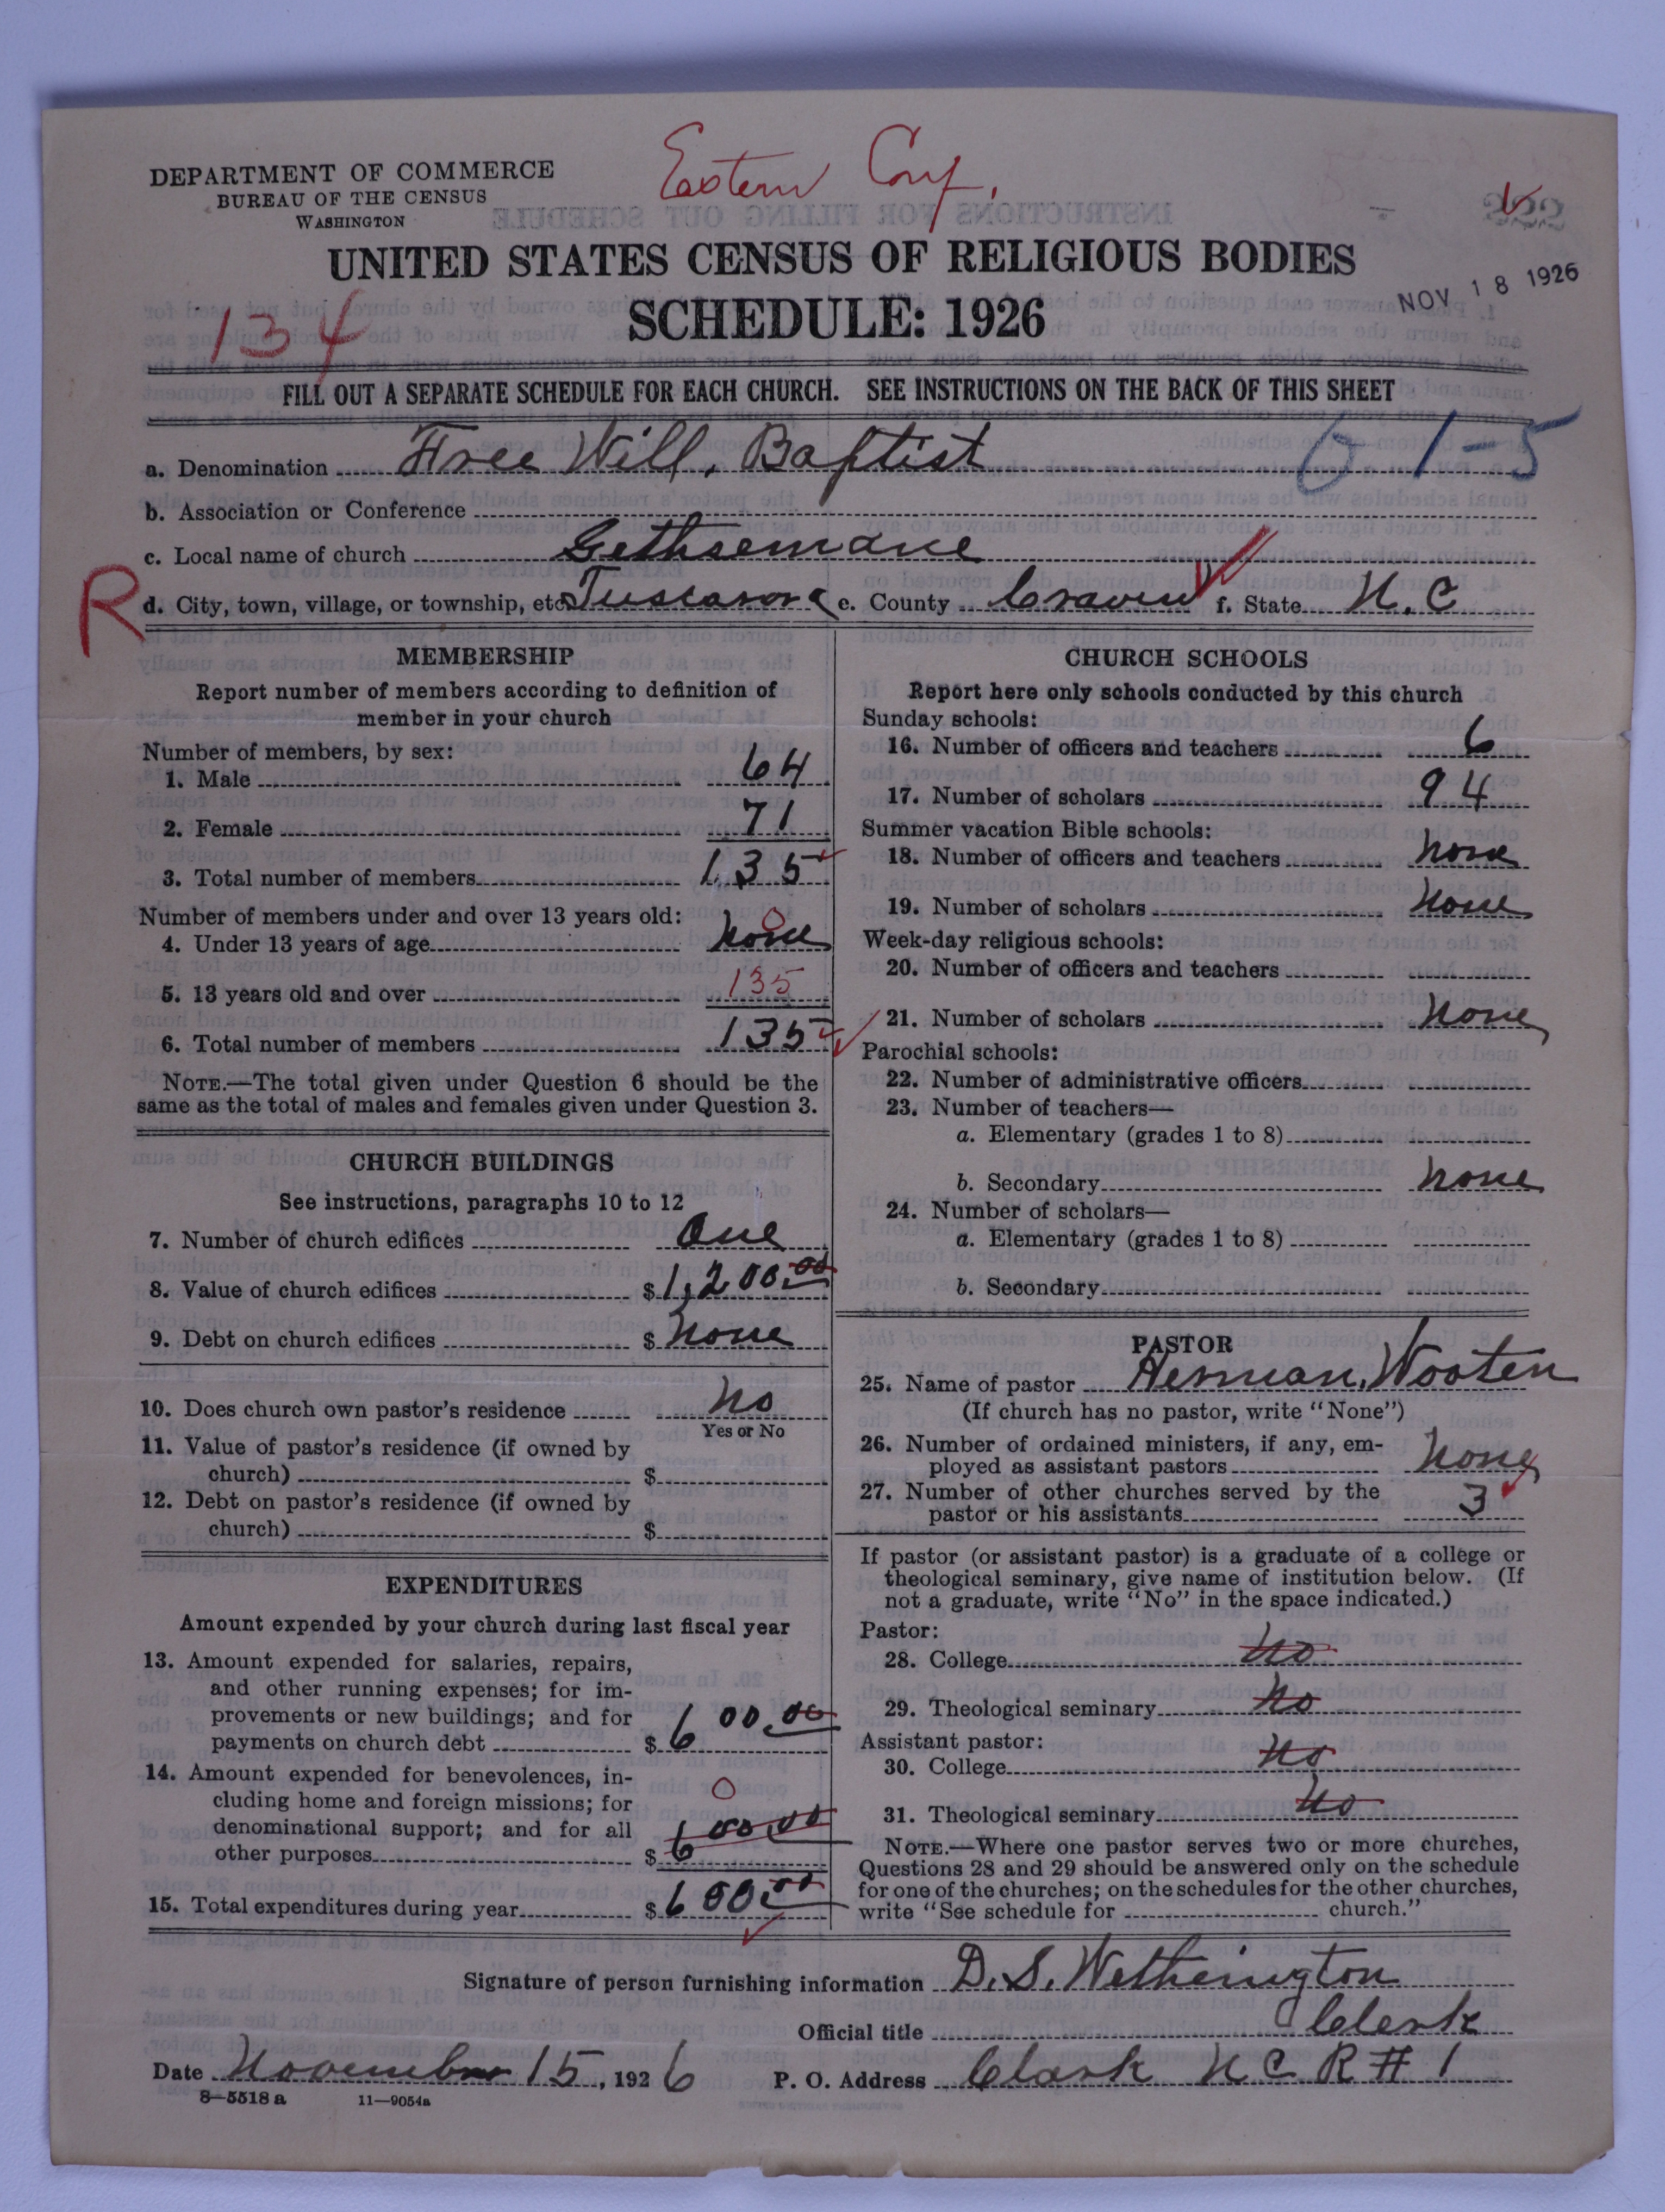 Eastern Conf.
DEPARTMENT OF COMMERCE
BUREAU OF THE CENSUS
WASHINGTON
UNITED STATES CENSUS OF RELIGIOUS BODIES
SCHEDULE: 1926
NOV 18 1926
134
FILL OUT A SEPARATE SCHEDULE FOR EACH CHURCH. SEE INSTRUCTIONS ON THE BACK OF THIS SHEET
a. Denomination Free Will. Baptist 0 1-5
b. Association or Conference
c. Local name of church Gethsemane
R d. City, town, village, or township, etc. Tuscarora e. County Craven f. State N.C
MEMBERSHIP
Report number of members according to definition of
member in your church
Number of members, by sex:
1. Male 64
2. Female 71
3. Total number of members 135
Number of members under and over 13 years old:
4. Under 13 years of age none 0
5. 13 years old and over 135
6. Total number of members 135
NOTE.—The total given under Question 6 should be the
same as the total of males and females given under Question 3.
CHURCH BUILDINGS
See instructions, paragraphs 10 to 12
7. Number of church edifices One
8. Value of church edifices $1,200.00
9. Debt on church edifices $ none
10. Does church own pastor's residence no
Yes or No
11. Value of pastor's residence (if owned by
church) $
12. Debt on pastor's residence (if owned by
church) $
EXPENDITURES
Amount expended by your church during last fiscal year
13. Amount expended for salaries, repairs,
and other running expenses; for im-
provements or new buildings; and for
payments on church debt $ 600.00
14. Amount expended for benevolences, in-
cluding home and foreign missions; for 0
denominational support; and for all
other purposes $ 600.00
15. Total expenditures during year $ 600.00
CHURCH SCHOOLS
Report here only schools conducted by this church
Sunday schools:
16. Number of officers and teachers 6
17. Number of scholars 94
Summer vacation Bible schools:
18. Number of officers and teachers none
19. Number of scholars none
Week-day religious schools:
20. Number of officers and teachers
21. Number of scholars none
Parochial schools:
22. Number of administrative officers
23. Number of teachers—
a. Elementary (grades 1 to 8)
b. Secondary none
24. Number of scholars—
a. Elementary (grades 1 to 8)
b. Secondary
PASTOR
25. Name of pastor Herman. Wooten
(If church has no pastor, write "None")
26. Number of ordained ministers, if any, em-
ployed as assistant pastors none
27. Number of other churches served by the
pastor or his assistants 3
If pastor (or assistant pastor) is a graduate of a college or
theological seminary, give name of institution below. (If
not a graduate, write "No" in the space indicated.)
Pastor:
28. College no
29. Theological seminary no
Assistant pastor:
30. College no
31. Theological seminary no
NOTE.—Where one pastor serves two or more churches,
Questions 28 and 29 should be answered only on the schedule
for one of the churches; on the schedules for the other churches,
write "See schedule for church."
Signature of person furnishing information D. S. Wetherington
Official title Clerk
Date November 15, 1926 P. O. Address Clark N C R # 1
8—5518 a 11—9054a